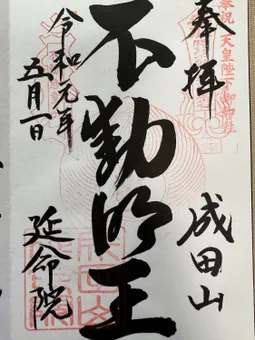 奉拝
奉祝 天皇陛下御即位
成田山
不動明王
令和元年
五月一日
延命院